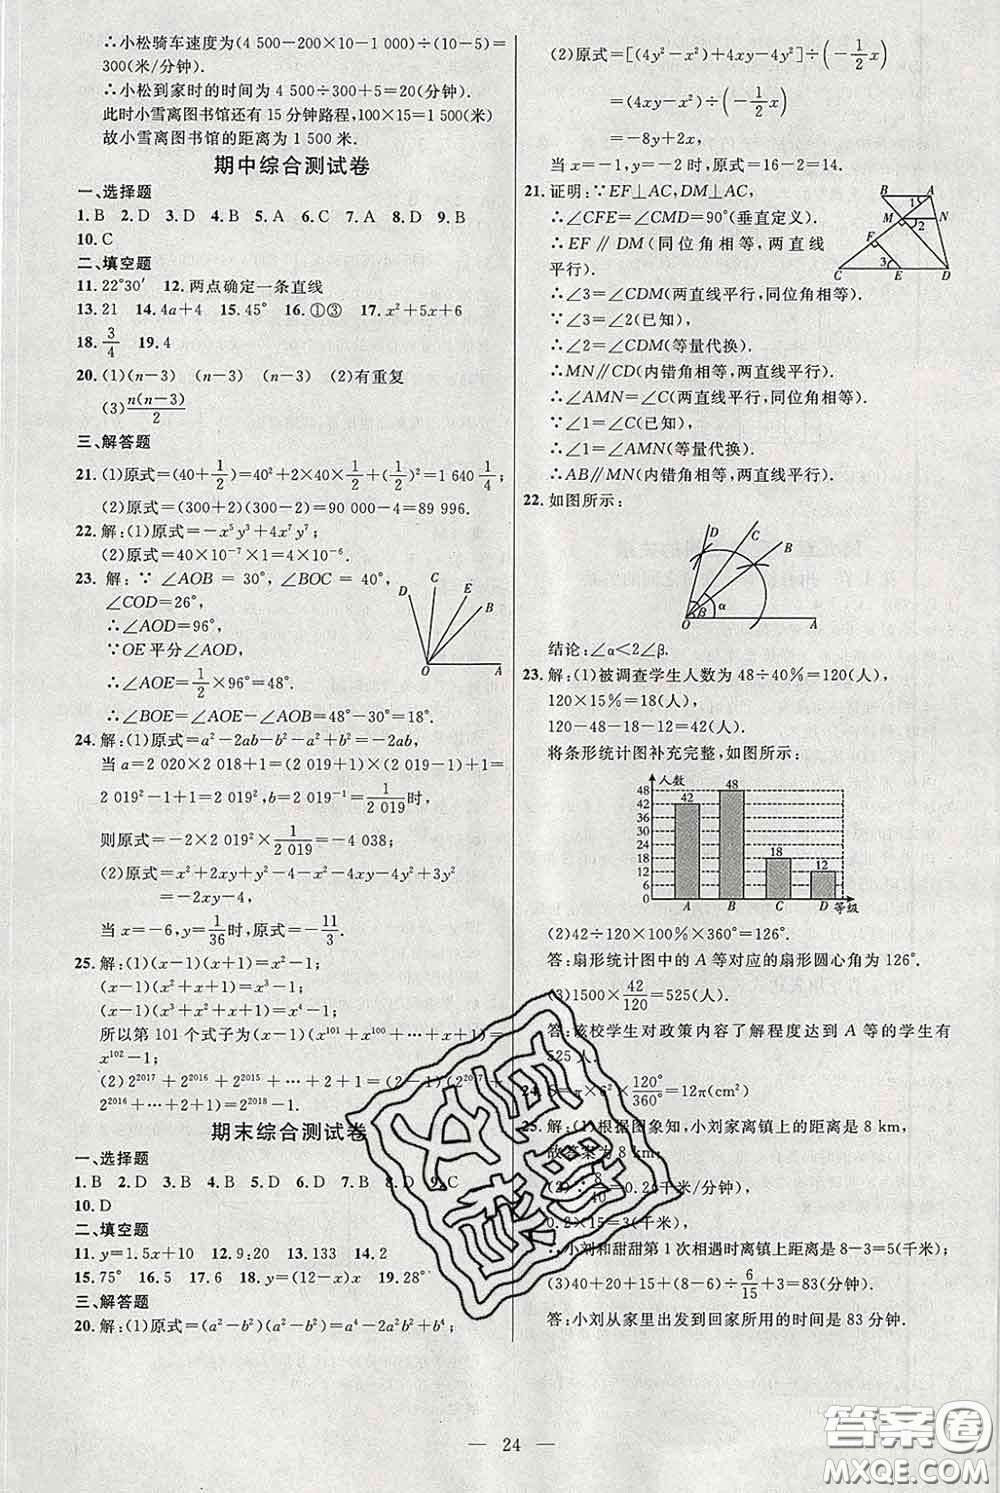 ∴小松骑车速度为(4 500－200×10－1 000)÷(10－5)=
300(米/分钟).
∴小松到家时的时间为 4 500÷300+5=20(分钟).
此时小雪离图书馆还有 15 分钟路程,100×15=1 500(米)
故小雪离图书馆的距离为 1 500 米.
期中综合测试卷
一、选择题
1. B 2. D 3. D 4. B 5. A 6. C 7. A 8. D 9. B
10. C
二、填空题
11. 22°30′ 12. 两点确定一条直线
13. 21 14. 4a+4 15. 45° 16. ①③ 17. x²+5x+6
18. 3/4 19. 4
20. (1)(n－3) (n－3) (n－3) (2)有重复
(3)n(n－3)/2
三、解答题
21. (1)原式=(40+1/2)=40²+2×40×1/2+(1/2)²=1 640 1/4;
(2)原式=(300+2)(300－2)=90 000－4=89 996.
22. 解:(1)原式=－x⁵y³+4x⁷y⁷;
(2)原式=40×10⁻⁷×1=4×10⁻⁶.
23. 解: ∵ ∠AOB = 30°, ∠BOC = 40°,
∠COD=26°,
∴∠AOD=96°,
∵OE 平分∠AOD,
∴∠AOE=1/2×96°=48°.
∴∠BOE=∠AOE－∠AOB=48°－30°=18°.
D C E B O A
24. 解:(1)原式=a²－2ab－b²－a²+b²=－2ab,
当 a=2 020×2 018+1=(2 019+1)×(2 019－1)+1=
2 019²－1+1=2 019²,b=1/2 019时,
则原式=－2×2 019²×1/2 019=－4 038;
(2)原式=x²+2xy+y²－4－x²－4xy－4y²+3y²
=－2xy－4,
当 x=－6,y=1/36时,原式=－11/3.
25. 解:(1)(x－1)(x+1)=x²－1;
(x－1)(x²+x+1)=x³－1;
(x－1)(x³+x²+x+1)=x⁴－1;
所以第 101 个式子为(x－1)(x¹⁰¹+x¹⁰⁰+…+x+1)=
x¹⁰²－1;
(2)2²⁰¹⁷+2²⁰¹⁶+2²⁰¹⁵+…+2+1=(2－1)(2²⁰¹⁷+
2²⁰¹⁶+…+2+1)=2²⁰¹⁸－1.
期末综合测试卷
一、选择题
1. B 2. D 3. C 4. D 5. B 6. C 7. B 8. D 9. C
10. D
二、填空题
11. y=1.5x+10 12. 9:20 13. 133 14. 2
15. 75° 16. 4 17. 6 18. y=(12－x)x 19. 28°
三、解答题
20. 解:(1)原式=(a²－b²)(a²－b²)=a⁴－2a²b²+b⁴;
(2)原式=[(4y²－x²)－(4y²－4xy)]÷(－1/2x)
=(4xy－x²)÷(－1/2x)
=－8y+2x.
当 x=－1,y=－2 时,原式=16－2=14.
21. 证明:∵EF⊥AC,DM⊥AC,
∴∠CFE=∠CMD=90°(垂直定义).
∴EF∥DM(同位角相等,两直线
平行).
∴∠3=∠CDM(两直线平行,同位角相等).
∵∠3=∠2(已知),
∴∠2=∠CDM(等量代换).
∴MN∥CD(内错角相等,两直线平行).
∴∠AMN=∠C(两直线平行,同位角相等).
∵∠1=∠C(已知),
∴∠1=∠AMN(等量代换).
∴AB∥MN(内错角相等,两直线平行).
B A 1 M N 2 F 3 C E D
22. 如图所示:
D C B β α O A
结论:∠α<2∠β.
23. 解:(1)被调查学生人数为 48÷40%=120(人),
120×15%=18(人),
120－48－18－12=42(人).
将条形统计图补充完整,如图所示:
人数
48 44 40 36 32 28 24 20 16 12 8 4 0
42 48 18 12
A B C D 等级
(2)42÷120×100%×360°=126°.
答:扇形统计图中的 A 等对应的扇形圆心角为 126°.
(3)1500×42/120=525(人).
答:该校学生对政策内容了解程度达到 A 等的学生有
525 人.
24. S=π×6²×120°/360°=12π(cm²)
25. 解:(1)根据图象知,小刘家离镇上的距离是 8 km,
故答案为 8 km;
(2)∵8/40=0.2(千米/分钟),
0.2×15=3(千米),
∴小刘和甜甜第 1 次相遇时离镇上的距离是 8－3=5(千米);
(3)40+20+15÷6/15+3=83(分钟).
答:小刘从家里出发到回家所用的时间是 83 分钟.
— 24 —
答案卷
MXQE.COM